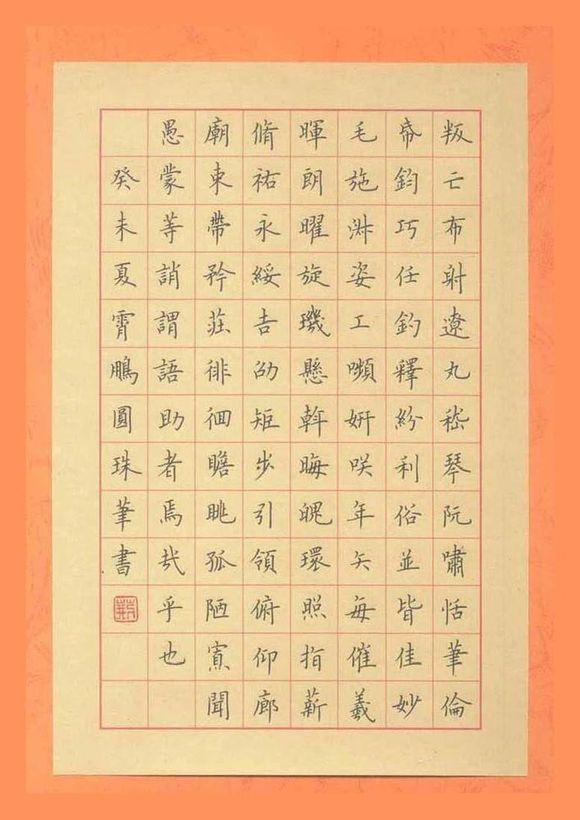 叛亡布射遼丸嵇琴阮嘯恬筆倫
帋鈞巧任釣釋紛利俗並皆佳妙
毛施淑姿工嚬妍咲年矢每催羲
暉朗曜旋璣懸斡晦魄環照指薪
脩祐永綏吉劭矩步引領俯仰廊
廟束帶矜莊徘徊瞻眺孤陋寡聞
愚蒙等誚謂語助者焉哉乎也
癸未夏霄鵬圓珠筆書